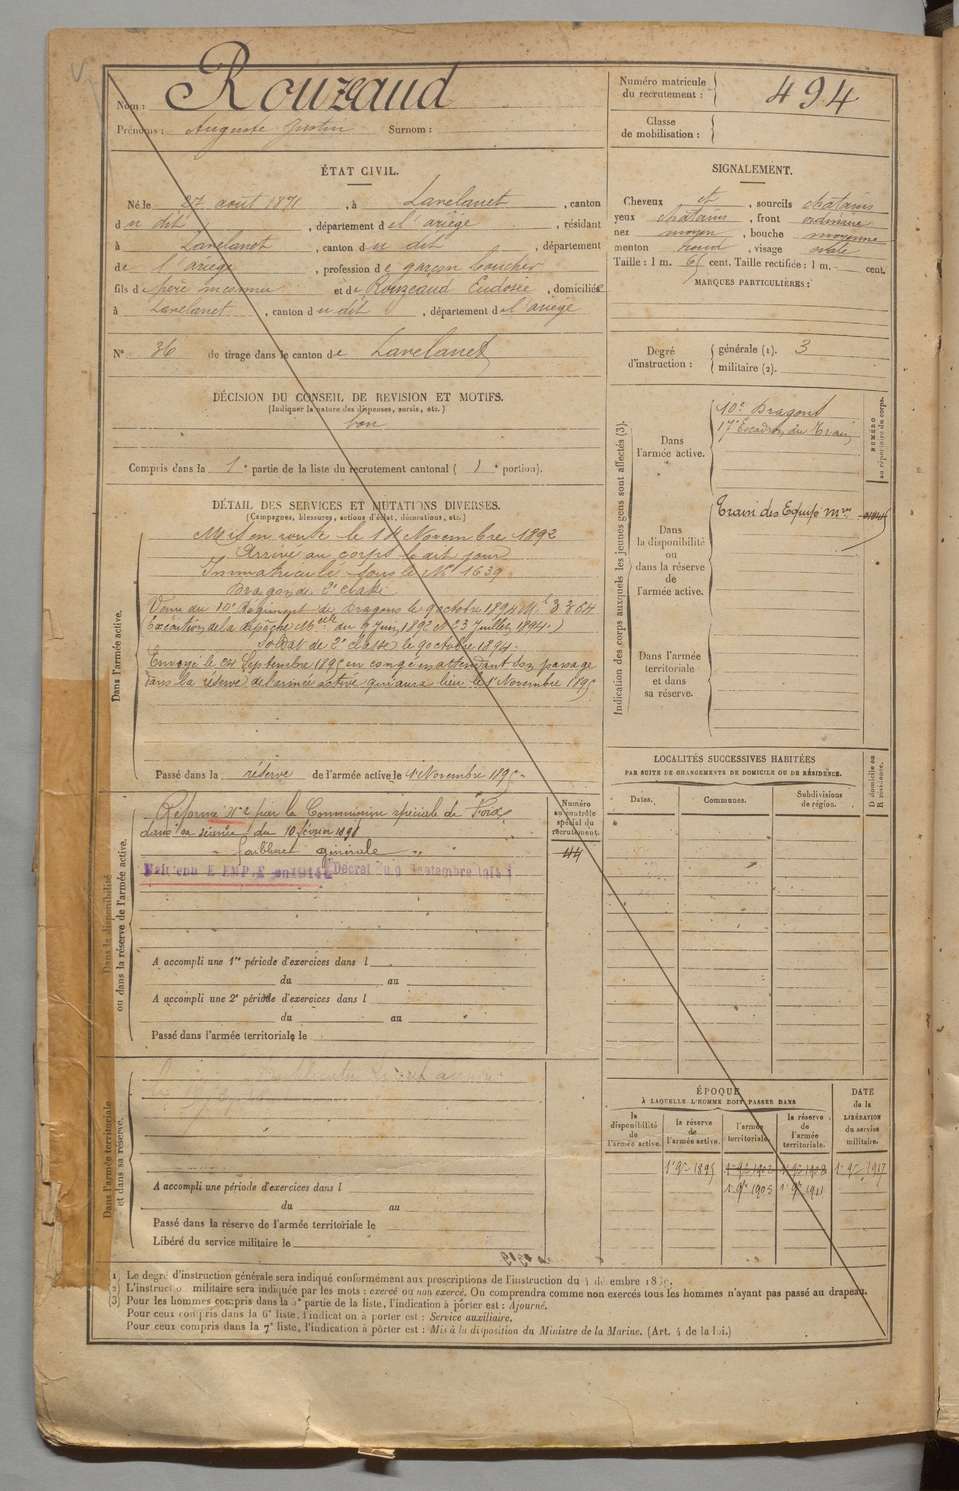 Nom : Rouzeaud
Prénoms : Auguste Justin Surnom :
Numéro matricule du recrutement : 494
Classe de mobilisation :
ÉTAT CIVIL.
Né le 27 août 1871, à Lavelanet, canton
du dit, département de l'ariège, résidant
à Lavelanet, canton du dit, département
de l'ariège, profession de garçon boucher
fils de père inconnu et de Rouzeaud Eudosie, domiciliée
à Lavelanet, canton du dit, département de l'ariège
N° 36 de tirage dans le canton de Lavelanet
SIGNALEMENT.
Cheveux et, sourcils châtains
yeux châtains, front ordinaire
nez moyen, bouche moyenne
menton rond, visage ovale
Taille : 1 m. 65 cent. Taille rectifiée : 1 m. cent.
MARQUES PARTICULIÈRES :
Degré d'instruction : générale (1). 3
militaire (2).
DÉCISION DU CONSEIL DE REVISION ET MOTIFS.
(Indiquer la nature des dispenses, sursis, etc.)
bon
Compris dans la 1e partie de la liste du recrutement cantonal (1e portion).
DÉTAIL DES SERVICES ET MUTATIONS DIVERSES.
(Campagnes, blessures, actions d'éclat, décorations, etc.)
Dans l'armée active.
Mis en route le Novembre 1892
Arrivé au corps le dit jour
Immatriculé sous le N° 1639
Dragon de 2e classe
Venu du 10e Régiment de Dragons le 9 octobre 1894 Mle 3364
(Exécution de la dépêche Melle du 9 Juin 1892 et 23 Juillet 1894.)
Soldat de 2e classe le 9 octobre 1894.
Envoyé le 24 Septembre 1895 en congé en attendant son passage
dans la réserve de l'armée active qui aura lieu le 1er Novembre 1895
Passé dans la réserve de l'armée active le 1er Novembre 1895
Indication des corps auxquels les jeunes gens sont affectés (3).
NUMÉRO au répertoire du corps.
Dans l'armée active.
10e Dragons
17e Escadron du Train
Dans la disponibilité ou dans la réserve de l'armée active.
Train des Equip. mres
Dans l'armée territoriale et dans sa réserve.
Dans la disponibilité ou dans la réserve de l'armée active.
Réformé n° 2 par la Commission spéciale de Foix
dans sa séance du 10 février 1898
faiblesse générale
Maintenu REMPE en 1914 Décret du 9 Septembre 1914
Numéro au contrôle spécial du recrutement.
44
A accompli une 1re période d'exercices dans l
du au
A accompli une 2e période d'exercices dans l
du au
Passé dans l'armée territoriale le
LOCALITÉS SUCCESSIVES HABITÉES
PAR SUITE DE CHANGEMENTS DE DOMICILE OU DE RÉSIDENCE.
Dates. Communes. Subdivisions de région. D domicile ou R résidence.
Dans l'armée territoriale et dans sa réserve.
A accompli une période d'exercices dans l
du au
Passé dans la réserve de l'armée territoriale le
Libéré du service militaire le
ÉPOQUE
À LAQUELLE L'HOMME DOIT PASSER DANS
la disponibilité de l'armée active. la réserve de l'armée active. l'armée territoriale. la réserve de l'armée territoriale. DATE de la LIBÉRATION du service militaire.
1er 9bre 1895 1er 9bre 1902 1er 9bre 1908 1er 9bre 1917
1er 9bre 1905 1er 9bre 1911
(1) Le degré d'instruction générale sera indiqué conformément aux prescriptions de l'instruction du 4 décembre 1889.
(2) L'instruction militaire sera indiquée par les mots : exercé ou non exercé. On comprendra comme non exercés tous les hommes n'ayant pas passé au drapeau.
(3) Pour les hommes compris dans la 5e partie de la liste, l'indication à porter est : Ajourné.
Pour ceux compris dans la 6e liste, l'indication à porter est : Service auxiliaire.
Pour ceux compris dans la 7e liste, l'indication à porter est : Mis à la disposition du Ministre de la Marine. (Art. 4 de la loi.)